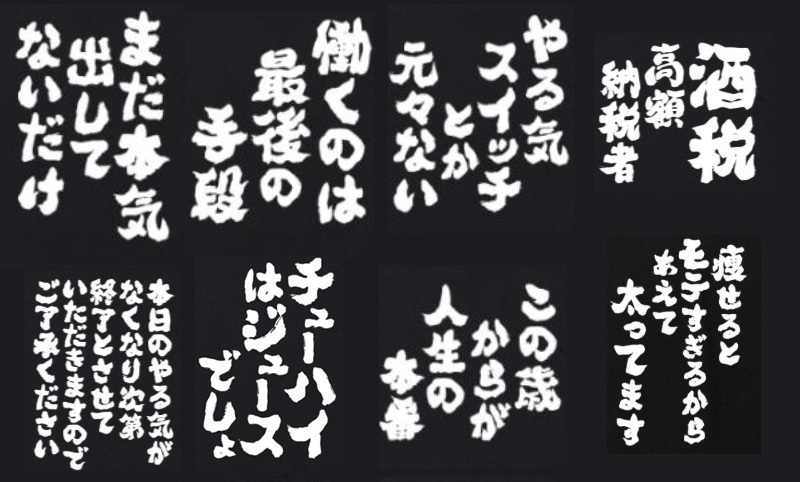 まだ本気
出して
ないだけ
働くのは
最後の
手段
やる気
スイッチ
とか
元々ない
酒税
高額
納税者
本日のやる気が
なくなり次第
終了とさせて
いただきますので
ご了承ください
チューハイ
はジュース
でしょ
この歳
からが
人生の
本番
痩せると
モテすぎるから
あえて
太ってます